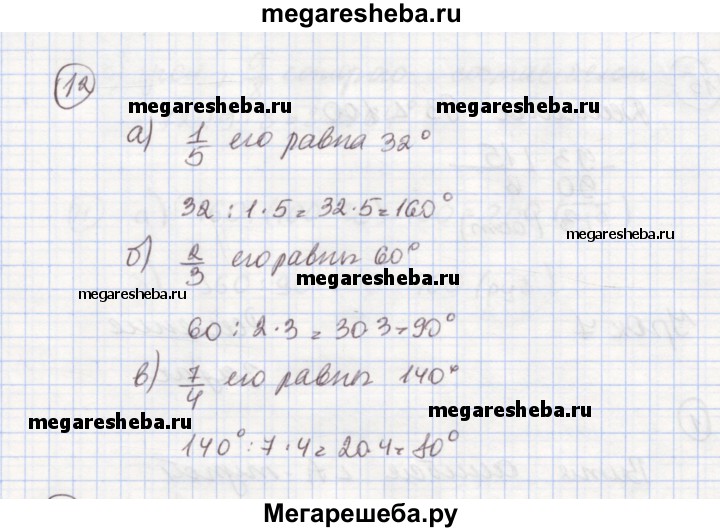 megaresheba.ru
12
megaresheba.ru megaresheba.ru
а) 1/5 его равна 32°
32 : 1 · 5 = 32 · 5 = 160°
б) 2/3 его равны 60°
megaresheba.ru megaresheba.ru
60 : 2 · 3 = 30 3 = 90°
в) 7/4 его равны 140°
megaresheba.ru megaresheba.ru
140° : 7 · 4 = 20 · 4 = 80°
Мегарешеба.ру